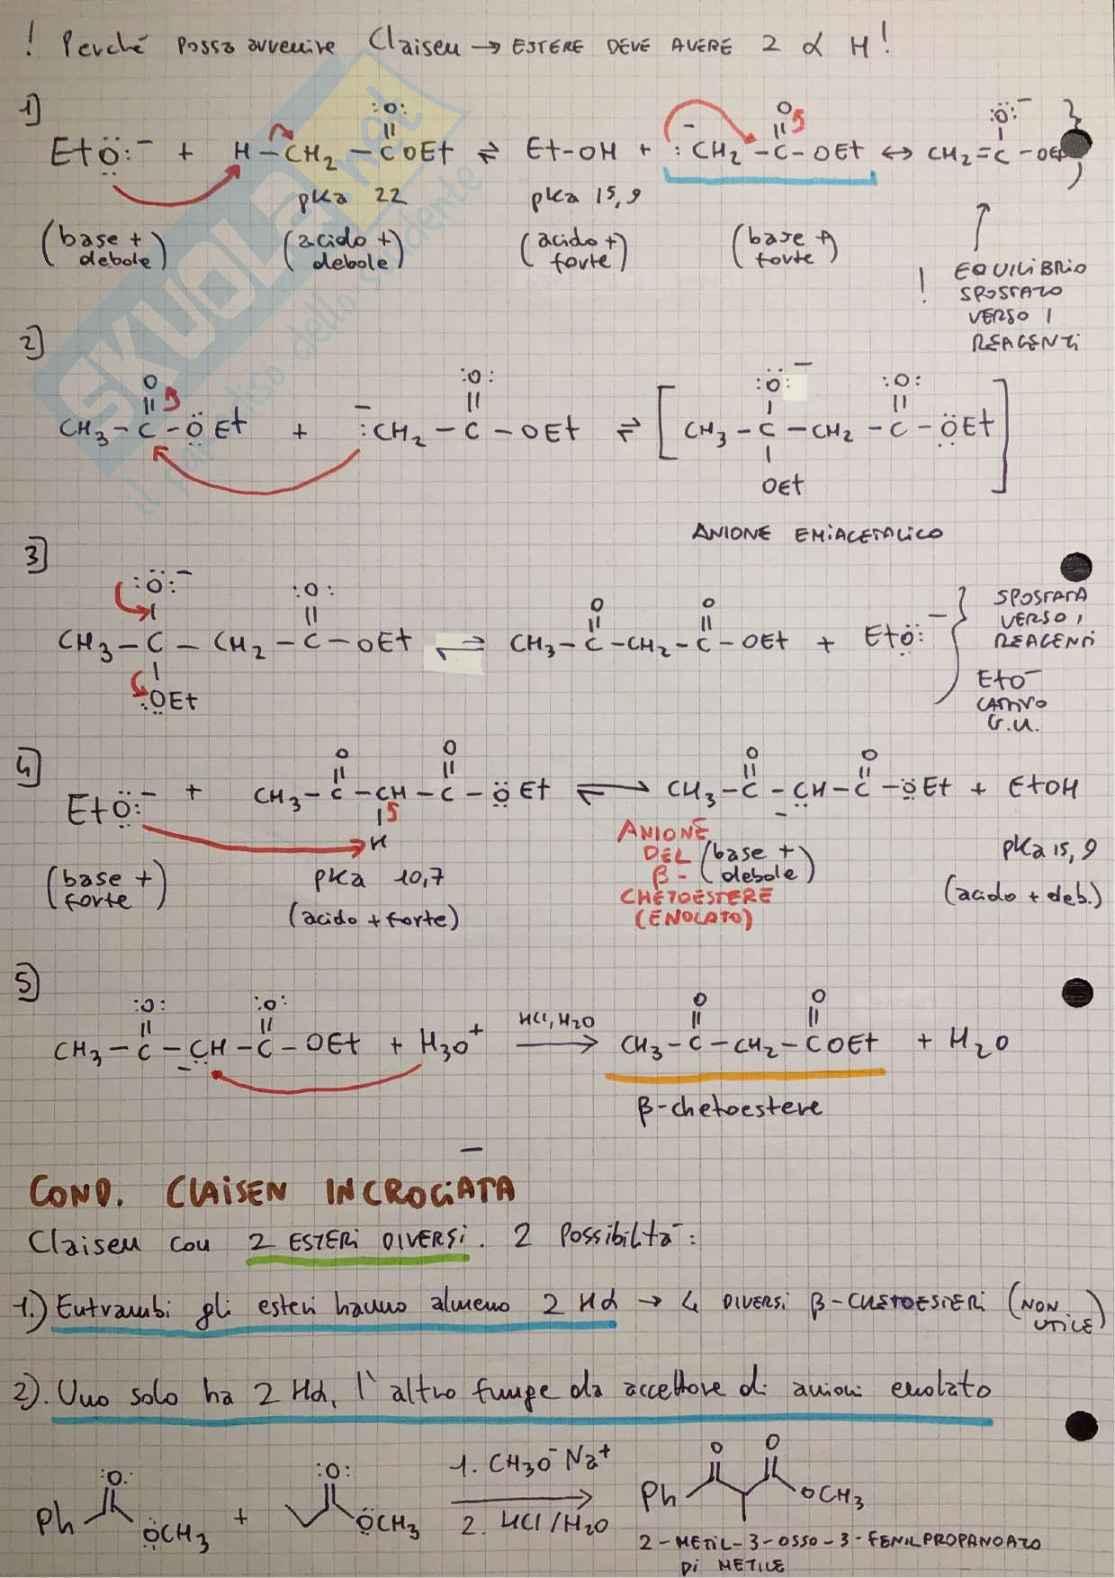 ! Perché possa avvenire Claisen → ESTERE DEVE AVERE 2 α H!
1)
EtÖ:⁻ + H – CH₂ – C(=O) OEt ⇌ Et-OH + ⁻:CH₂ – C(=O) – OEt ↔ CH₂=C(–O⁻) – OEt
pKa 22 pKa 15,9
(base + debole) (acido + debole) (acido + forte) (base + forte)
! EQUILIBRIO
SPOSTATO
VERSO I
REAGENTI
2)
CH₃ – C(=O) – OEt + ⁻:CH₂ – C(=O) – OEt ⇌ [CH₃ – C(–O⁻)(OEt) – CH₂ – C(=O) – OEt]
ANIONE EMIACETALICO
3)
CH₃ – C(–O⁻)(OEt) – CH₂ – C(=O) – OEt ⇌ CH₃ – C(=O) – CH₂ – C(=O) – OEt + EtÖ:⁻
SPOSTATA
VERSO I
REAGENTI
EtO⁻
CATTIVO
G.U.
4)
EtÖ:⁻ + CH₃ – C(=O) – CH(H) – C(=O) – ÖEt ⇌ CH₃ – C(=O) – C̈H⁻ – C(=O) – ÖEt + EtOH
(base + forte) pKa 10,7 (acido + forte)
ANIONE
DEL
β-
CHETOESTERE
(ENOLATO)
(base + debole)
pKa 15,9
(acido + deb.)
5)
CH₃ – C(=O) – C̈H⁻ – C(=O) – OEt + H₃O⁺ HCl, H₂O → CH₃ – C(=O) – CH₂ – C(=O)OEt + H₂O
β-chetoestere
COND. CLAISEN INCROCIATA
Claisen con 2 ESTERI DIVERSI. 2 Possibilità:
1.) Entrambi gli esteri hanno almeno 2 Hα → 4 DIVERSI β-CHETOESTERI (NON UTILE)
2). Uno solo ha 2 Hα, l'altro funge da accettore di anioni enolato
Ph O ÖCH₃ + O ÖCH₃ 1. CH₃O⁻Na⁺ Ph O O OCH₃
2. HCl/H₂O
2-METIL-3-OSSO-3-FENILPROPANOATO
DI METILE
SKUOLA.net